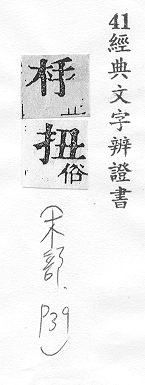 41經典文字辨證書
杽
扭俗
(木部.P39)